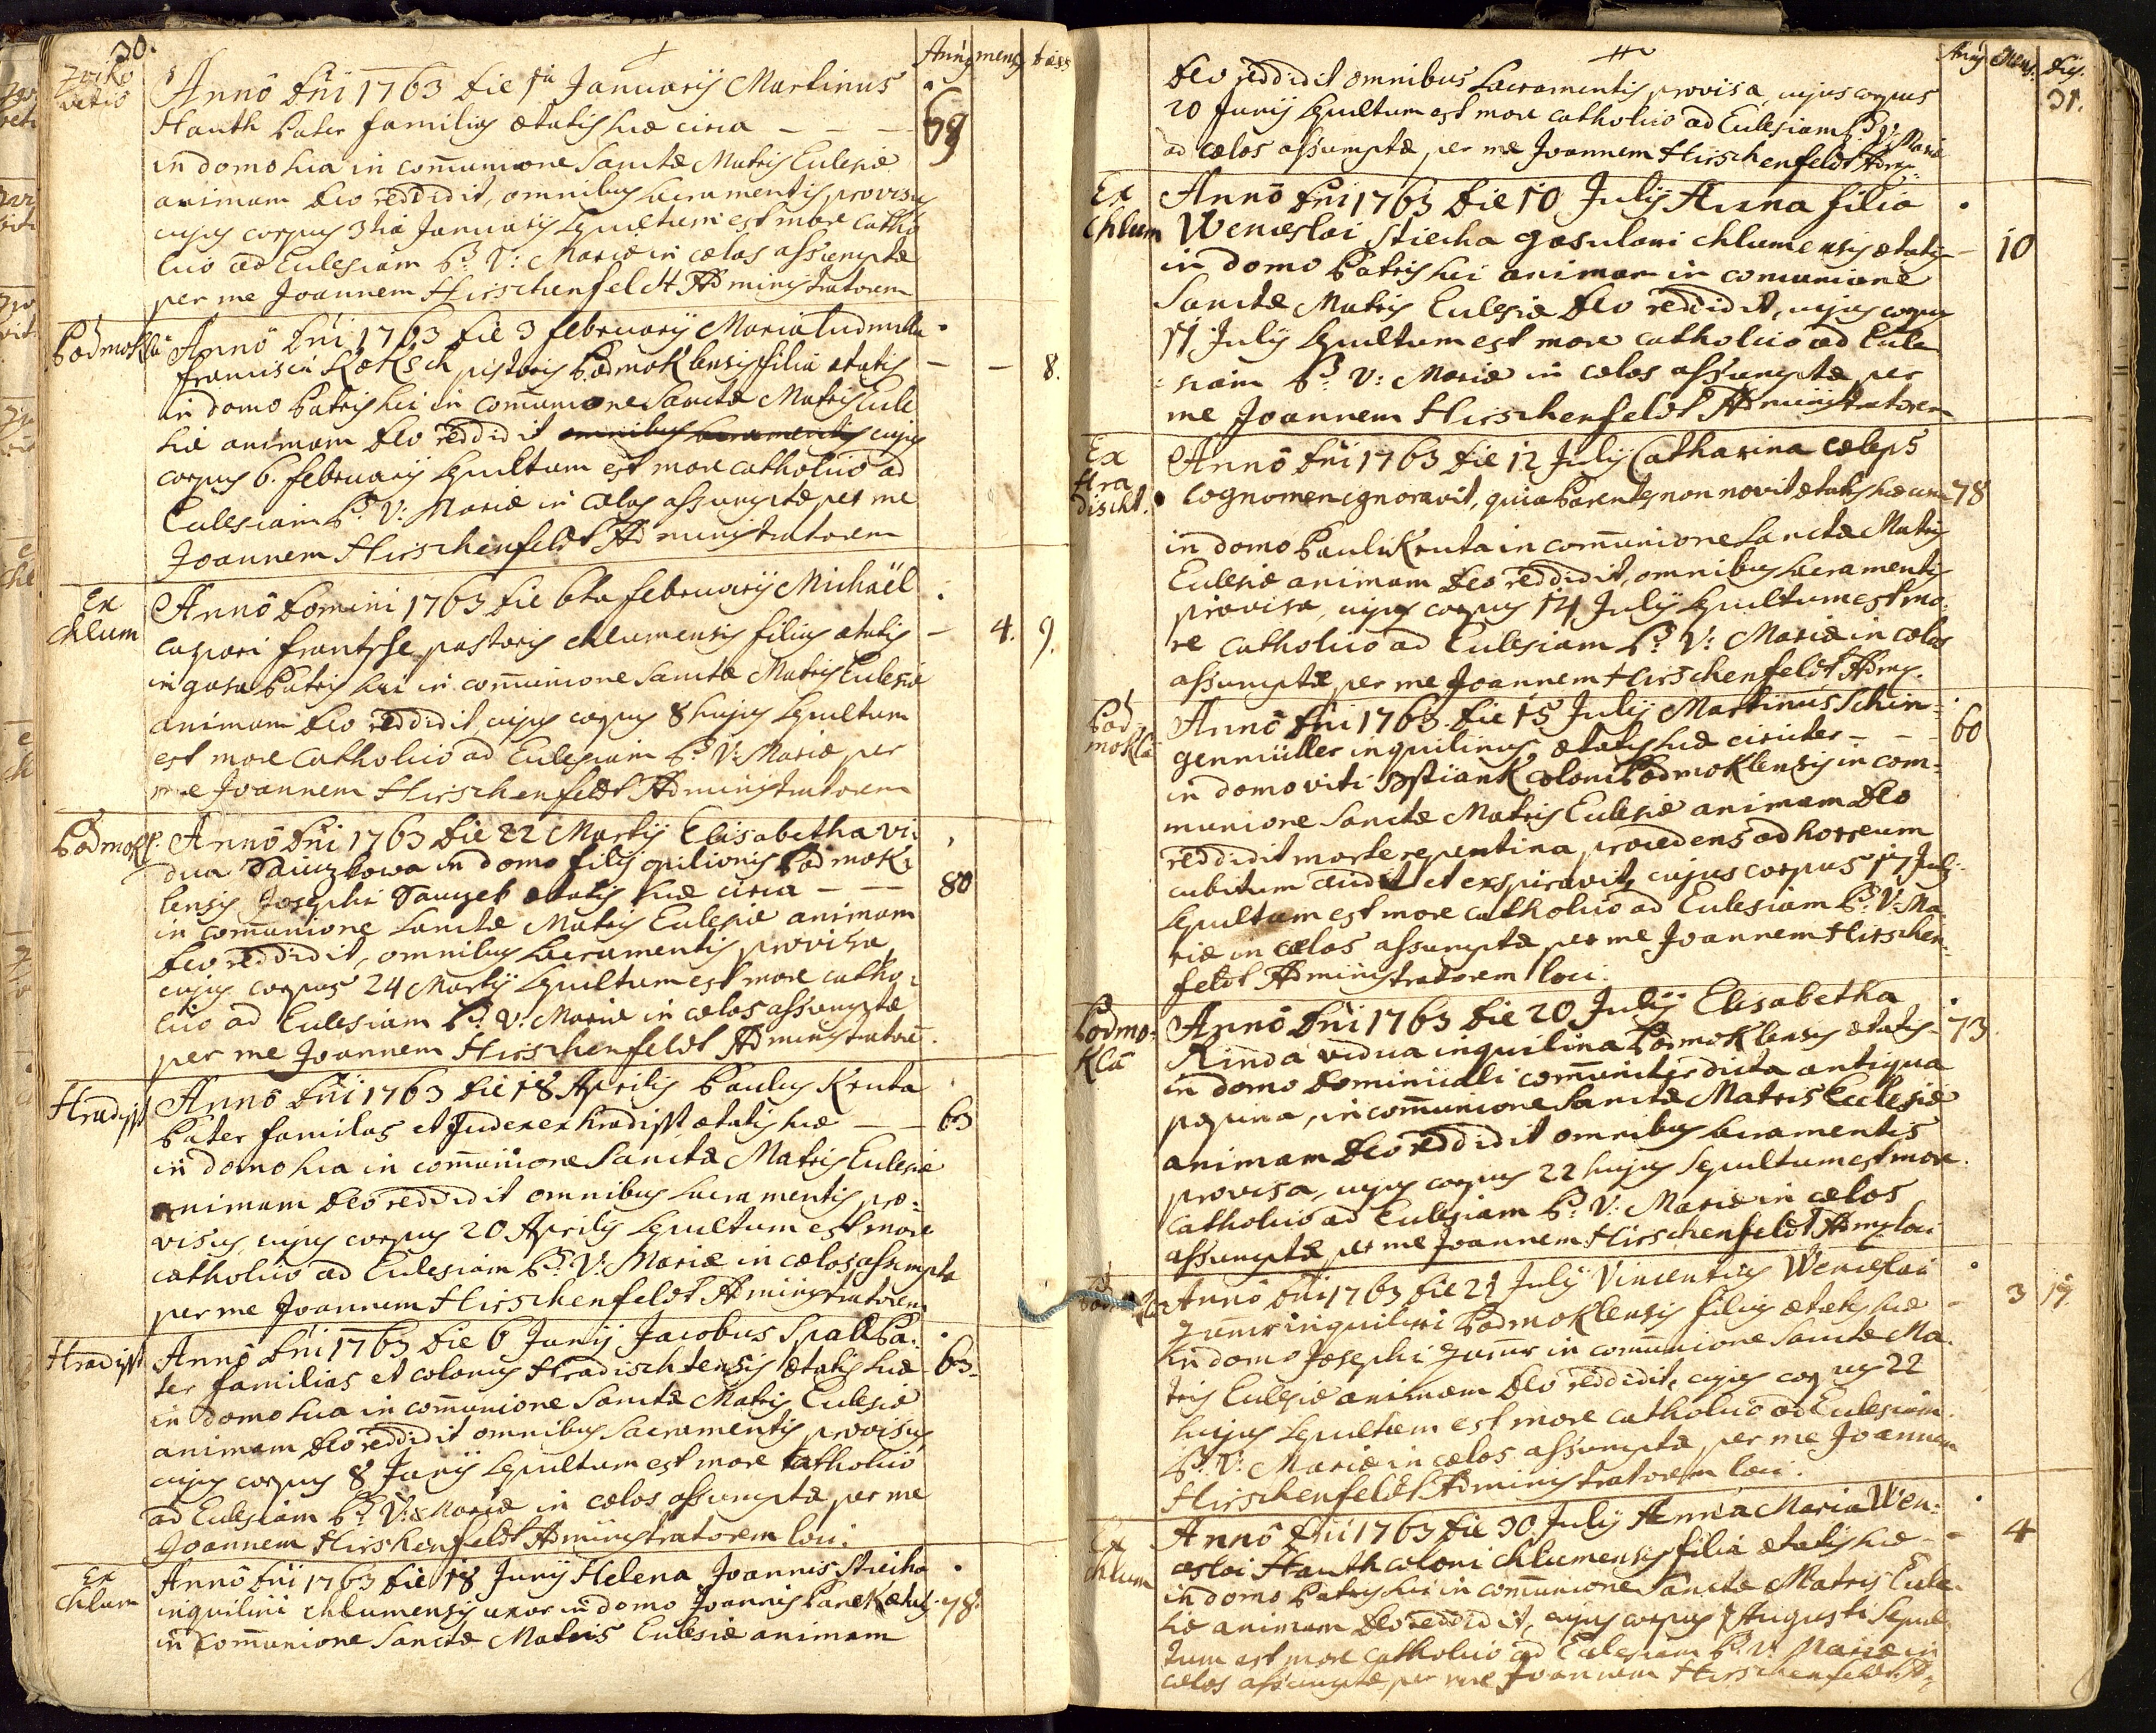 30.
Annꝰ mens dies
Zwiko
vetio
Annô Dñi 1763 die 1ma Januarij Martinus
Hauth Pater familias ætatis suæ circa — — —
69
in domo sua in com̄unione Sanctæ Matris Eclesiæ
animam Deo reddidit, omnibus sacramentis provisus
cujus corpus 3tia Januarij sepultum est more catho
lico ad Eclesiam B. V: Mariæ in cælos assumptæ
per me Joannem Hirschenfeldt Administratorem
Podmokla
Annô Dñi 1763 die 3 februarij Maria Ludmilla
Francisci Koksch pistoris Podmoklensis filia ætatis — — 8.
in domo Patris sui in com̄unione Sanctæ Matris Ecle
siæ animam Deo reddidit omnibus sacramentis cujus
corpus 6. februarij sepultum est more catholico ad
Eclesiam B. V: Mariæ in cælos assumptæ per me
Joannem Hirschenfeldt Administratorem
Ex
Chlum
Annô Domini 1763 die 6ta februarij Michaël
Caspari frantsche pastoris chlumensis filius ætatis — 4. 9.
in gasa Patris sui in com̄unione Sanctæ Matris Eclesiæ
animam Deo reddidit, cujus corpus 8 hujus sepultum
est more Catholico ad Eclesiam B. V: Mariæ per
me Joannem Hirschenfeldt Administratorem
Podmokl.
Annô Dñi 1763 die 22 Martij Elisabetha vi:
dua in domo filij opilionis Podmok:
lensis Josephi ætatis suæ circa — —
80
in com̄unione Sanctæ Matris Eclesiæ animam
Deo reddidit, omnibus sacramentis provisa
cujus corpus 24 Martij sepultum est more catho:
lico ad Eclesiam B. V: Mariæ in cælos assumptæ
per me Joannem Hirschenfeldt Administratorē.
Hradisst
Annô Dñi 1763 die 18 Aprilis Paulus Kruta
Pater familias et Judex ex Hradisst ætatis suæ — — 63
in domo sua in com̄unione Sanctæ Matris Eclesiæ
animam Deo reddidit omnibus sacramentis pro:
visus, cujus corpus 20 Aprilis sepultum est more
catholico ad Eclesiam B. V: Mariæ in cælos assumptæ
per me Joannem Hirschenfeldt Administratorem
Hradisst
Annô Dñi 1763 die 6 Junij Jacobus Spall Pa:
ter familias et colonus Hradischtensis ætatis suæ 63
in domo sua in com̄unione Sanctæ Matris Eclesiæ
animam Deo reddidit omnibus Sacramentis provisus
cujus corpus 8 Junij sepultum est more catholico
ad Eclesiam B. V: Mariæ in cælos assumptæ per me
Joannem Hirschenfeldt Administratorem loci.
Ex
Chlum
Annô Dñi 1763 die 18 Junij Helena Joannis Stiecha
inquilini chlumensis uxor in domo Joannis Panek ætatis 78.
in com̄unione Sanctæ Matris Eclesiæ animam
Annꝰ Mens. Dies.
31.
Deo reddidit omnibus Sacramentis provisa, cujus corpus
20 Junij sepultum est more catholico ad Eclesiam B. V: Mariæ
ad cælos assumptæ per me Joannem Hirschenfeldt Adm:
Ex
Chlum
Annô Dñi 1763 die 10 Julij Anna filia
Wenceslai Stiecha gasulani chlumensis ætatis — 10
in domo Patris sui animam in comunione
Sanctæ Matris Eclesiæ Deo reddidit, cujus corpus
11 Julij sepultum est more catholico ad Ecle
siam B. V: Mariæ in cælos assumptæ per
me Joannem Hirschenfeldt Administratorem
Ex
Hra
discht.
Annô Dñi 1763 die 12 Julij Catharina cæleps
cognomen ignoravit, quia Parentes non novit ætatis suæ circa 78
in domo Pauli Kruta in com̄unione Sanctæ Matris
Eclesiæ animam Deo reddidit, omnibus sacramentis
provisa, cujus corpus 14 Julij sepultum est mo:
re catholico ad Eclesiam B. V: Mariæ in cælos
assumptæ per me Joannem Hirschenfeldt Adm.
Pod
mokla
Annô Dñi 1763 die 15 Julij Martinus Schin:
genmüller inquilinus ætatis suæ circiter — — — 60
in domo viti coloni Podmoklensis in com:
munione Sanctæ Matris Eclesiæ animam Deo
reddidit morte repentina, procedens ad horreum
cubitum cecidit et exspiravit, cujus corpus 17 Julij
sepultum est more catholico ad Eclesiam B. V: Ma
riæ in cælos assumptæ per me Joannem Hirschen:
feldt Administratorem loci.
Podmo:
kla
Annô Dñi 1763 die 20 Julij Elisabetha
Rinda vidua inquilina Podmoklensis ætatis — 73
in domo Dominicali com̄uniter dicta antiqua
popina, in com̄unione Sanctæ Matris Ecclesiæ
animam Deo reddidit omnibus sacramentis
provisa, cujus corpus 22 hujus Sepultum est more
catholico ad Eclesiam B. V: Mariæ in cælos
assumptæ per me Joannem Hirschenfeldt Adm: loci
Annô Dñi 1763 die 21 Julij Vincentius Wenceslai
inquilini Podmoklensis filius ætatis suæ — 3 19.
in domo Josephi in com̄unione Sanctæ Ma
tris Eclesiæ animam Deo reddidit, cujus corpus 22
hujus sepultum est more catholico ad Eclesiam
B. V: Mariæ in cælos assumptæ per me Joannem
Hirschenfeldt Administratorem loci.
Ex
chlum
Annô Dñi 1763 die 30 Julij Anna Maria Wen:
ceslai Hauth coloni chlumensis filia ætatis suæ — 4
in domo Patris sui in com̄unione Sanctæ Matris Ecle
siæ animam Deo reddidit, cujus corpus 1 Augusti Sepul
tum est more catholico ad Eclesiam B. V: Mariæ in
cælos assumptæ per me Joannem Hirschenfeldt